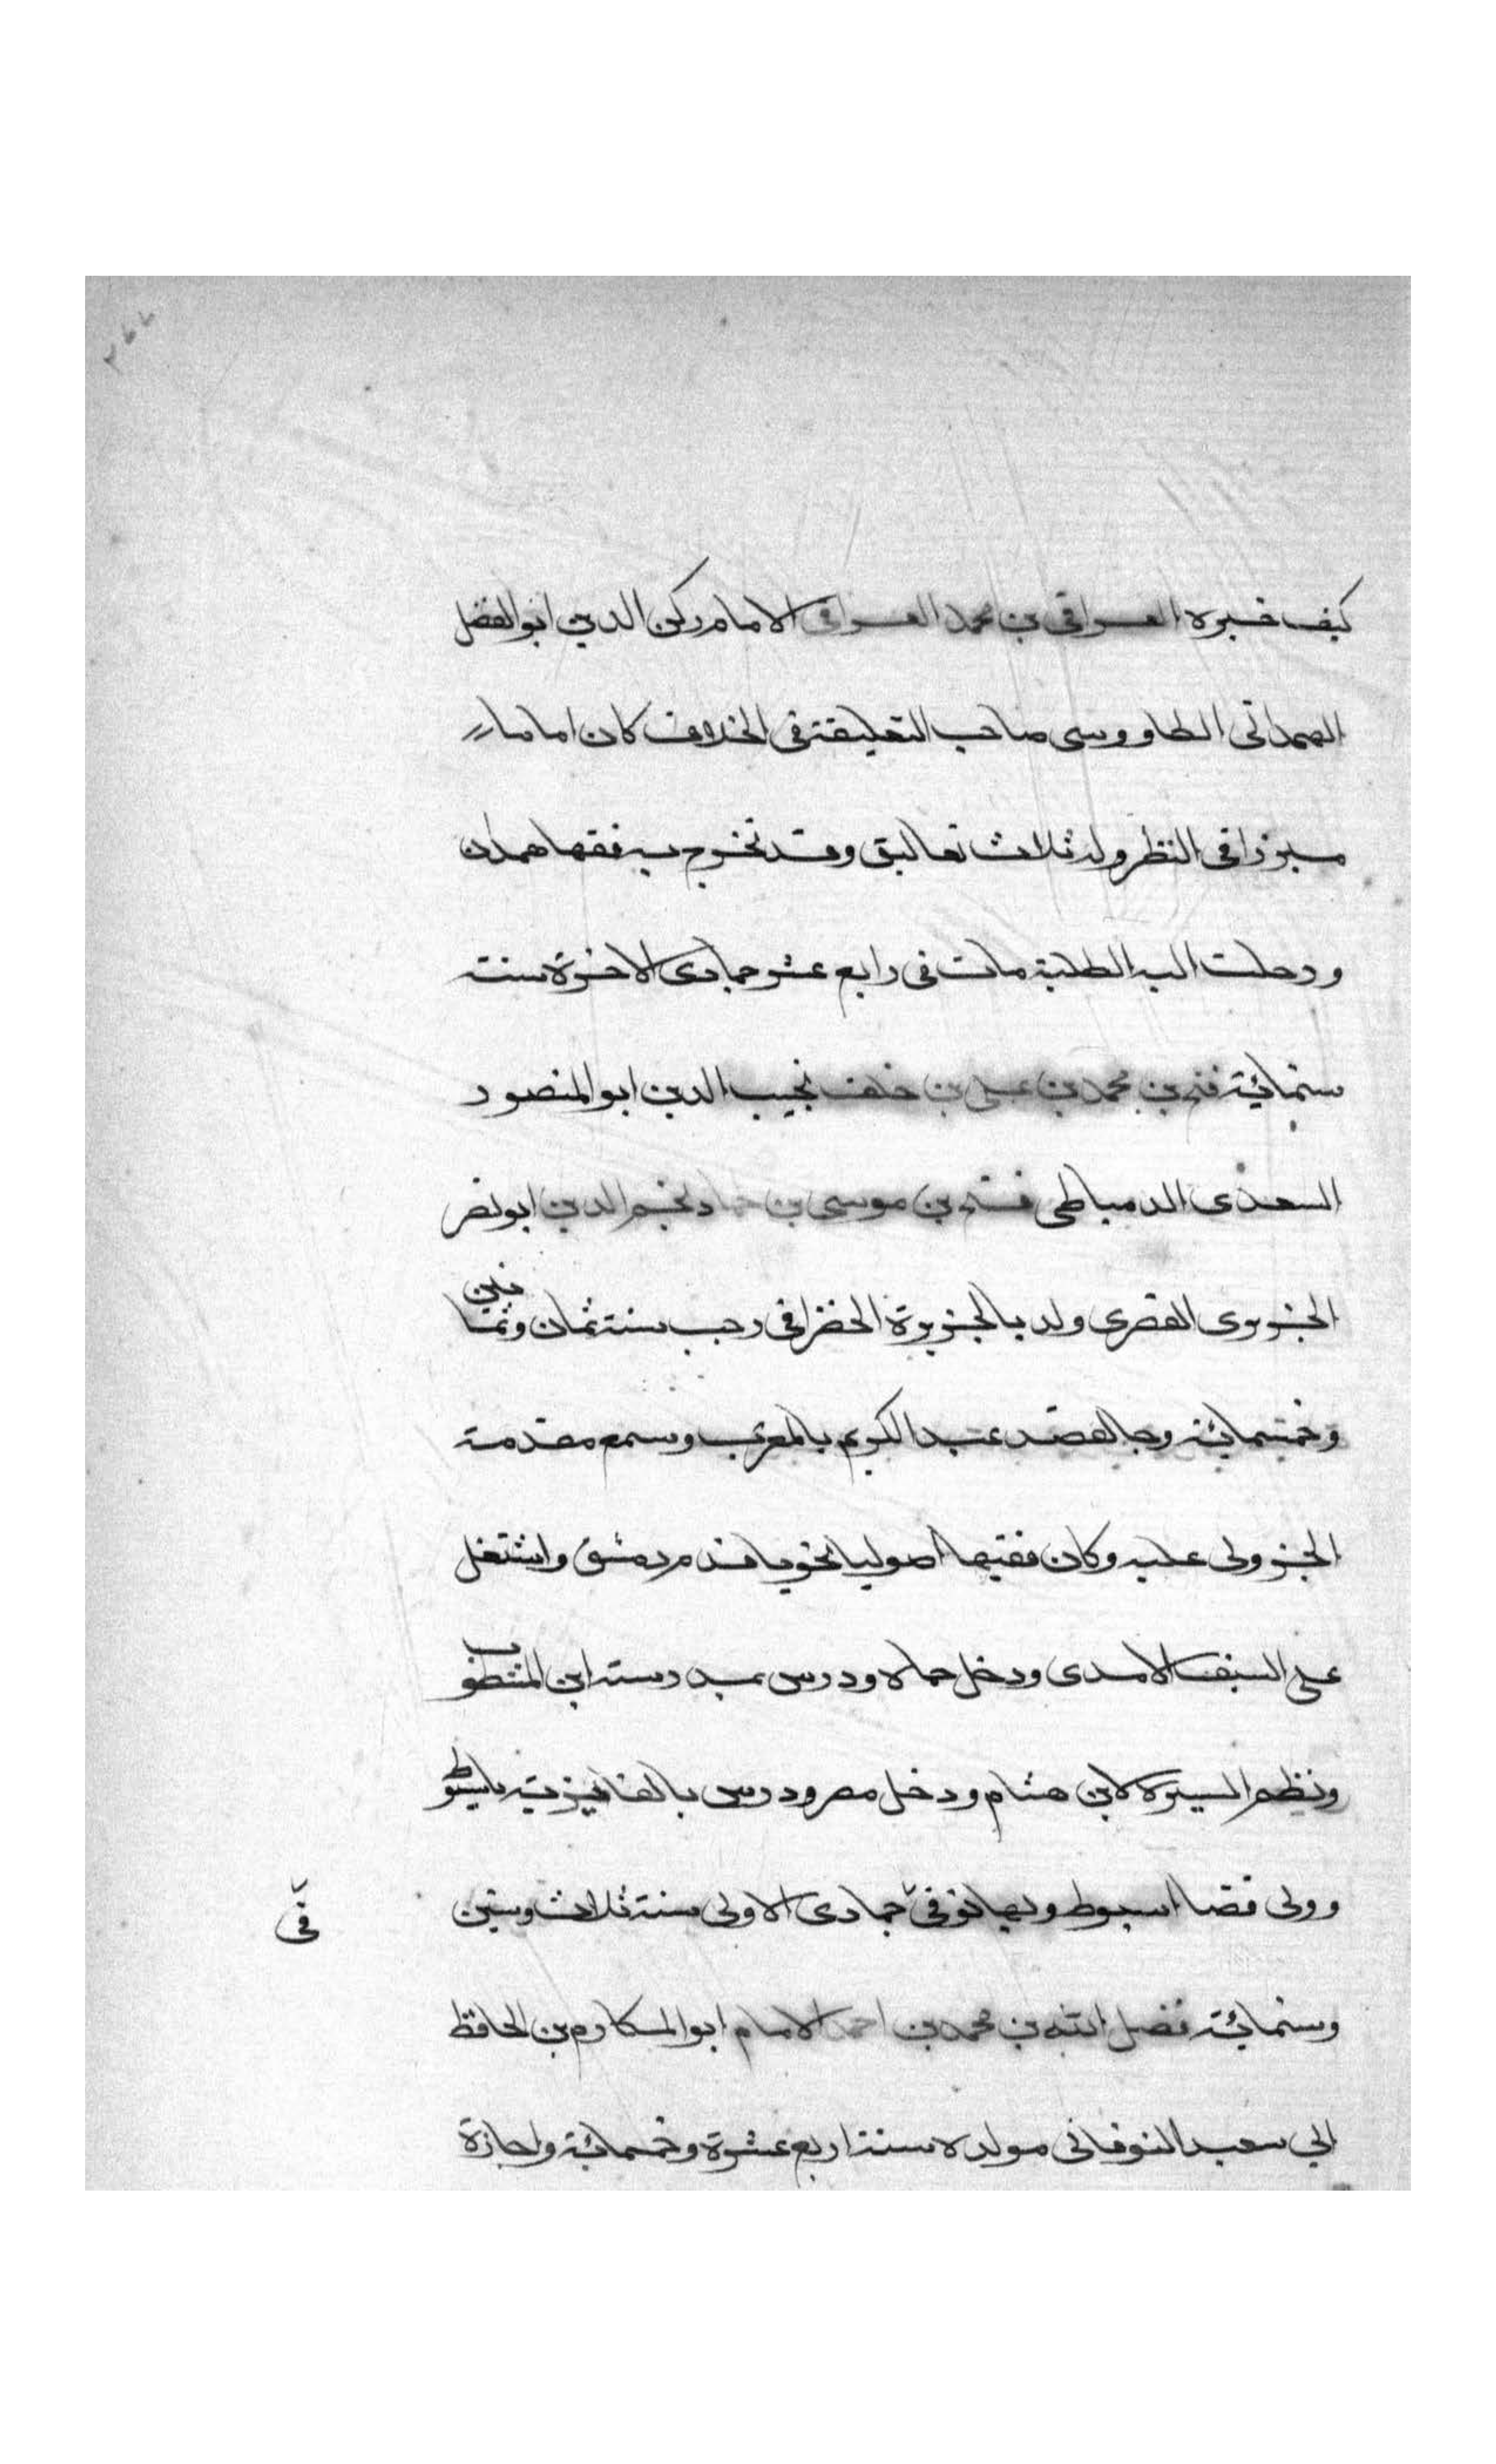 ٢٦٧
كيف خبره العراقي بن محمد العراقي الامام ركن الدين ابو الفضل
الهمداني الطاووسي صاحب التعليقة في الخلاف كان اماما
مبرزا في النظر وله ثلاث تعاليق وقد تخرج به فقها همدان
ورحلت اليه الطلبة مات في رابع عشر جمادى الاخرة سنة
ستمائة فتح بن محمد بن علي بن خلف نجيب الدين ابو المنصور
السعدى الدمياطي فتح بن موسى بن حماد نجم الدين ابو نصر
الجزيرى القصرى ولد بالجزيرة الخضرا في رجب سنة ثمان وثمانين
وخمسمائة وجا لقصد عبد الكريم بالمغرب وسمع مقدمة
الجزولى عليه وكان فقيها اصوليا نحويا قدم دمشق واشتغل
على السيف الامدى ودخل حماه ودرس بمدرسة ابن المشطوب
ونظم السيرة لابن هشام ودخل مصر ودرس بالفائزية باسيوط
وولى قضا اسيوط وبها توفي جمادى الاولى سنة ثلاث وستين
في
وستمائة فضل الله بن محمد بن احمد الامام ابو المكارم بن الحافظ
ابي سعيد النوقانى مولده سنة اربع عشرة وخمسمائة واجازة